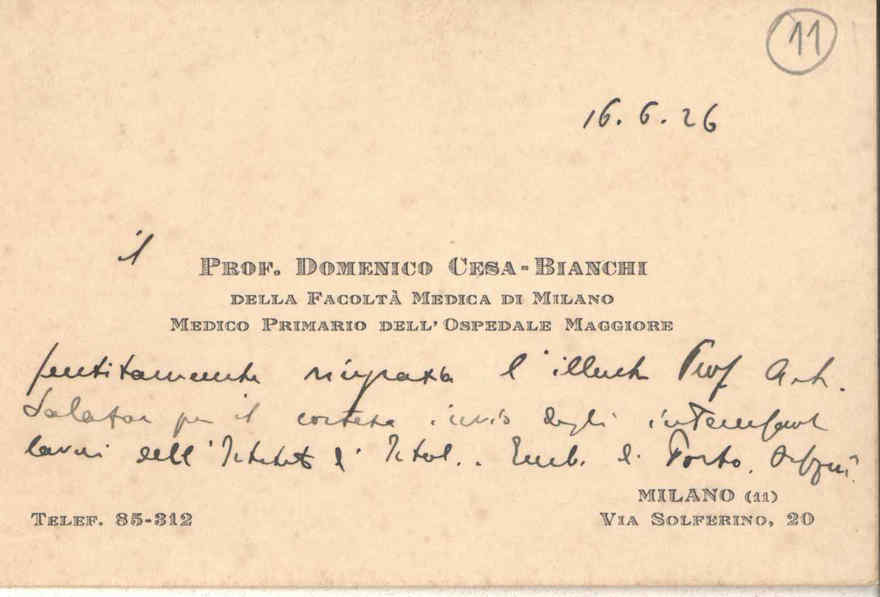 11
16.6.26
il
PROF. DOMENICO CESA-BIANCHI
DELLA FACOLTÀ MEDICA DI MILANO
MEDICO PRIMARIO DELL'OSPEDALE MAGGIORE
sentitamente ringrazia l'illustre Prof
Salazar per il cortese invio degli interessanti
lavori dell'Istituto d' Istol. e Emb. di Porto.
MILANO (11)
TELEF. 85-312
VIA SOLFERINO, 20